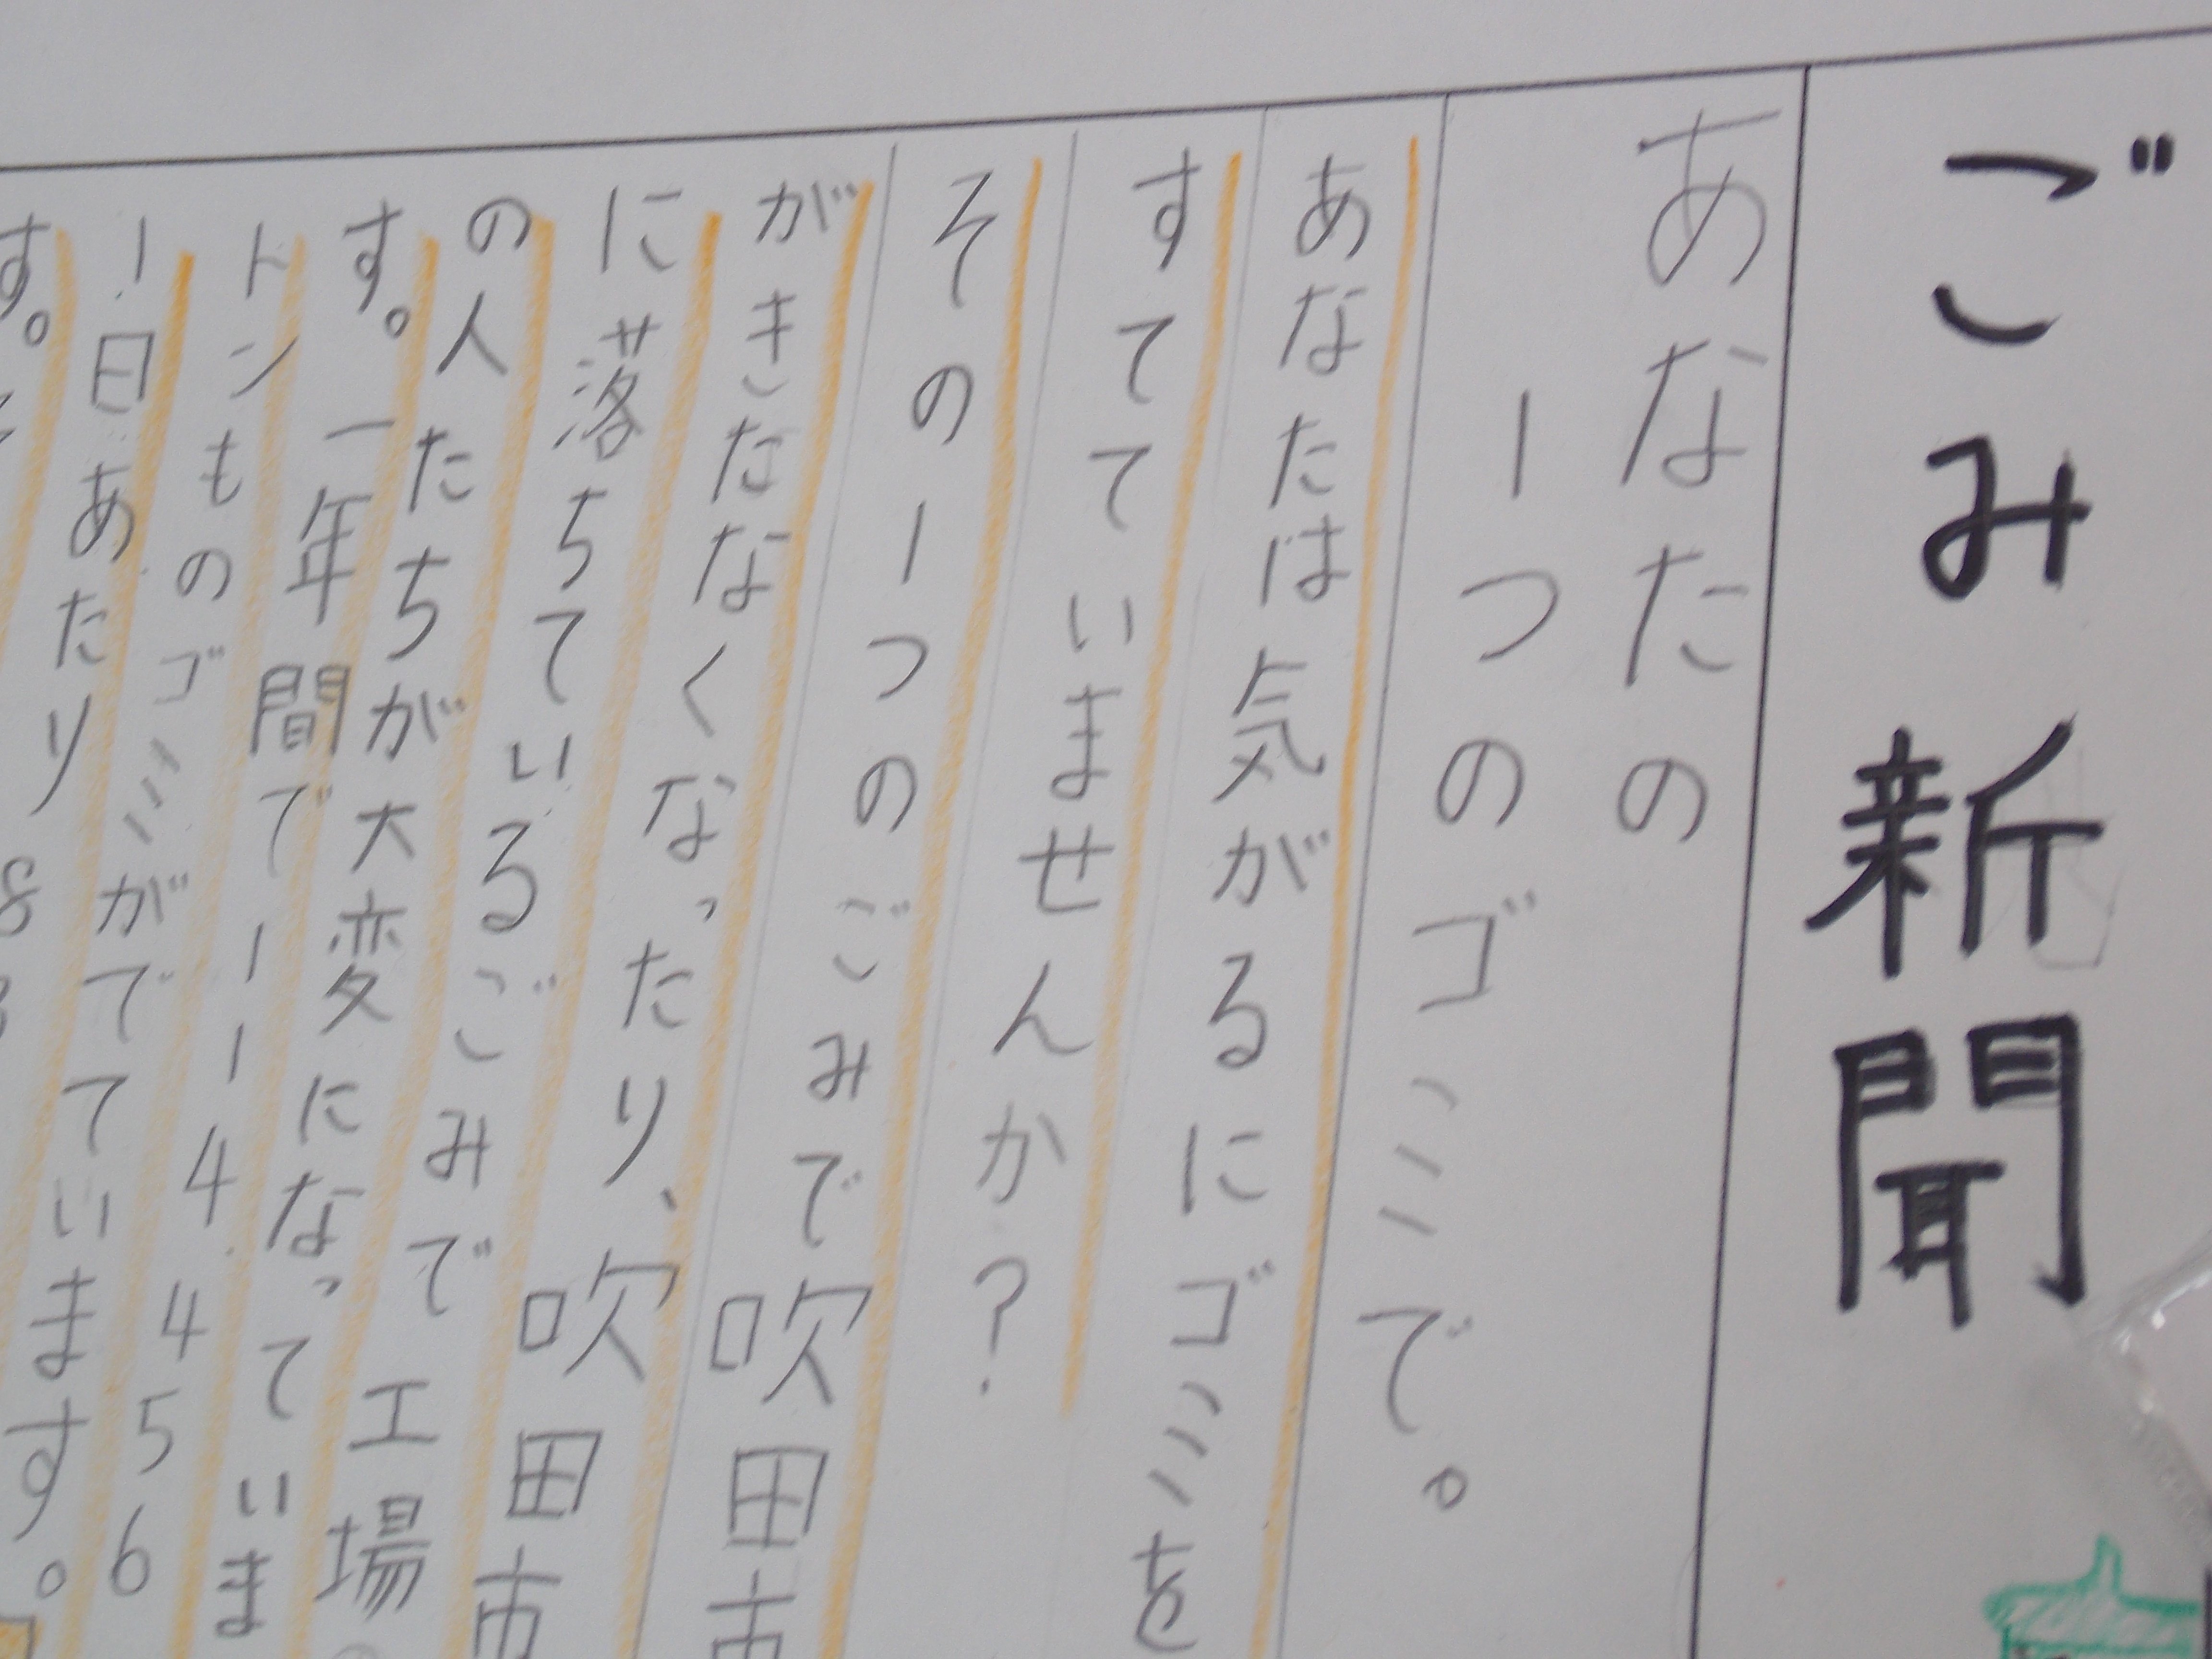 ごみ新聞
あなたの
一つのゴミで。
あなたは気がるにゴミを
すてていませんか?
その一つのごみで吹田市
がきたなくなったり、吹田市
に落ちているごみで工場
の人たちが大変になっていま
す。一年間で114456
トンものゴミがでています。
1日あたり
す。